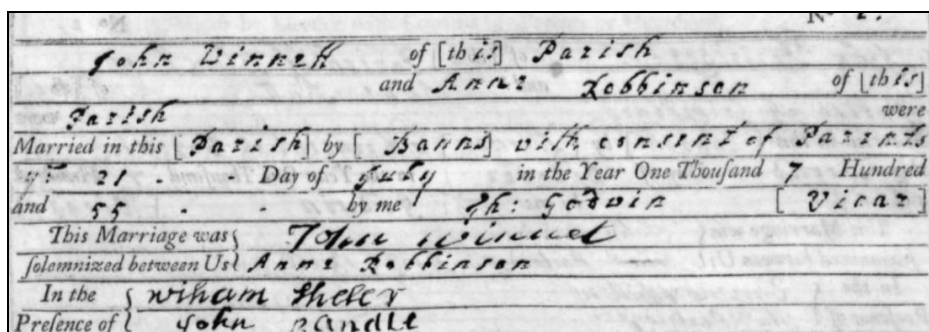 John Winnett of [this] Parish
and Anne Robbinson of [this]
Parish were
Married in this [Parish] by [Banns] with consent of Parents
ye 21 . Day of July in the Year One Thousand 7 Hundred
and 55 . . by me Th: Godwin [Vicar]
This Marriage was { John Winnet
solemnized between Us { Anne Robbinson
In the {
Presence of { John Randle